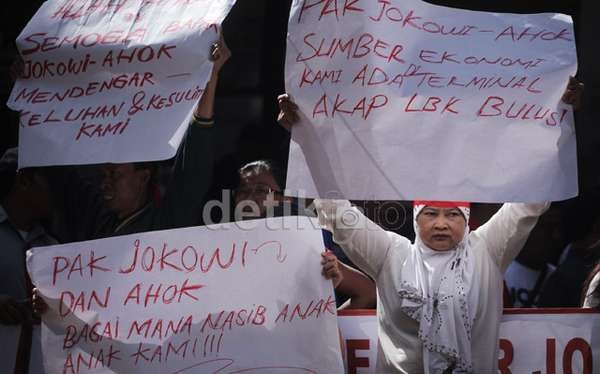 SEMOGA BAPAK
JOKOWI-AHOK
MENDENGAR
KELUHAN & KESULITAN
KAMI
PAK JOKOWI-AHOK
SUMBER EKONOMI
KAMI ADA DI TERMINAL
AKAP LBK BULUS!
PAK JOKOWI
DAN AHOK
BAGAI MANA NASIB ANAK
ANAK KAMI!!!
detikfoto